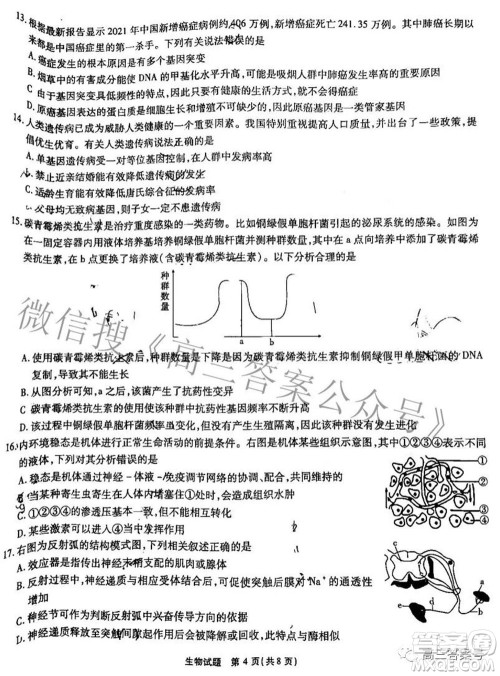 13. 根据最新报告显示2021年中国新增癌症病例约406万例，新增癌症死亡241.35万例。其中肺癌长期以
来都是中国癌症里的第一杀手。下列有关说法错误的是
A. 癌症发生的根本原因是有多个基因突变
B. 烟草中的有害成分能使DNA的甲基化水平升高，可能是吸烟人群中肺癌高发的重要原因
C. 由于基因突变具低频性的特点，因此只要有健康的生活方式，就不会得癌症
D. 原癌基因表达的蛋白质是细胞生长和增殖不可缺少的，所以原癌基因是一类管家基因
14. 人类遗传病已成为威胁人类健康的一个重要因素。我国特别重视提高人口质量，并出台了一些政策，提
倡优生优育。有关人类遗传病说法正确的是
A. 单基因遗传病受一对等位基因控制，在人群中发病率高
B. 禁止近亲结婚能有效预防各种遗传病的发生
C. 适龄生育能有效降低唐氏综合征的发病率
父母均无致病基因，则子女一定不患遗传病
15. 碳青霉烯类抗生素是治疗重度感染的一类药物。比如铜绿假单胞杆菌引起的泌尿系统的感染。如图为
在一固定容器内用液体培养基培养铜绿假单胞杆菌并测种群数量，其中在a点向培养中添加了碳青霉
烯类抗生素，在b点更换了培养液(含碳青霉烯类抗生素)。以下分析合理的是
种群数量
a b t
A. 使用碳青霉烯类抗生素后，种群数量的下降可能是因为碳青霉烯类抗生素抑制铜绿假单胞菌的DNA
复制，导致其不能生长
B. 从图分析可知，a之后，该菌产生了抗药性变异
C 碳青霉烯类抗生素的使用，使该菌种群的抗药基因频率增大
D. 该过程中铜绿假单胞杆菌群体没有产生生殖隔离，因此没有发生进化
16. 内环境稳态是机体进行正常生命活动的前提条件。右图是机体某些组织示意图，其中①②③④表示不同
的液体，下列对其分析错误的是
A. 稳态是机体通过神经-体液-免疫调节网络的协调、配合，共同维持的
当某种寄生虫寄生在人体内堵塞了④时，会出现组织水肿现象
C. ①②③④的渗透压基本一致，但不能发生相互转化
D. 某些激素可以进入①④当中发挥作用
17. 右图为反射弧的结构模式图，下列相关叙述正确的是
A. 效应器是指传出神经末梢和它所支配的肌肉或腺体
B. 反射过程中，神经递质与受体结合，可能使突触后膜对Na⁺的通透性
增加
C. 神经节的作用可判断反射弧中兴奋传导的方向
D. 神经递质与突触间隙发挥作用后就会降解或回收，此特点与酶相似
① ② ③ ④
a b c d e
生物试题 第4页(共8页)
微信搜《高三答案公众号》
高三答案号